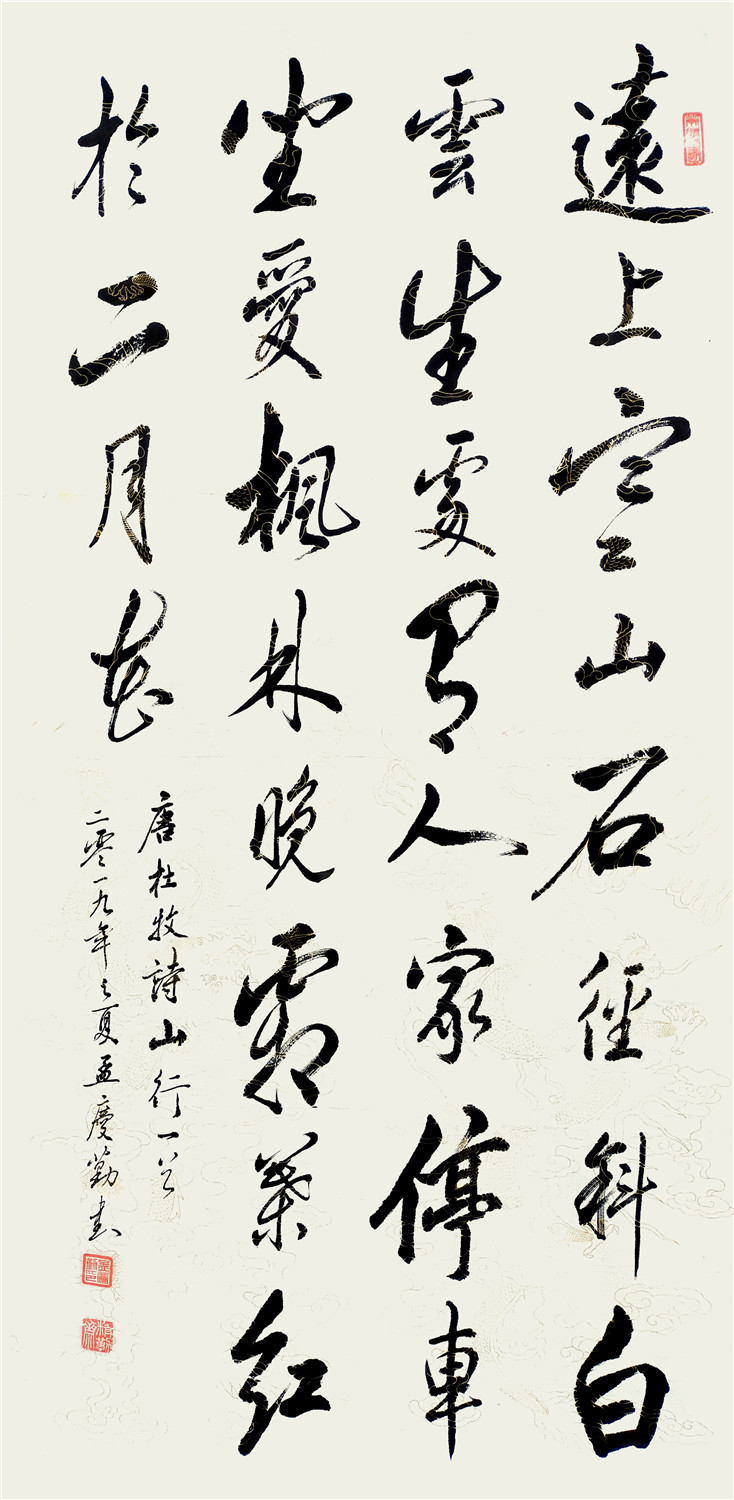 遠上寒山石徑斜白
雲生處有人家停車
坐愛楓林晚霜葉紅
於二月花
唐杜牧詩山行一首
二零一九年之夏孟慶勤書